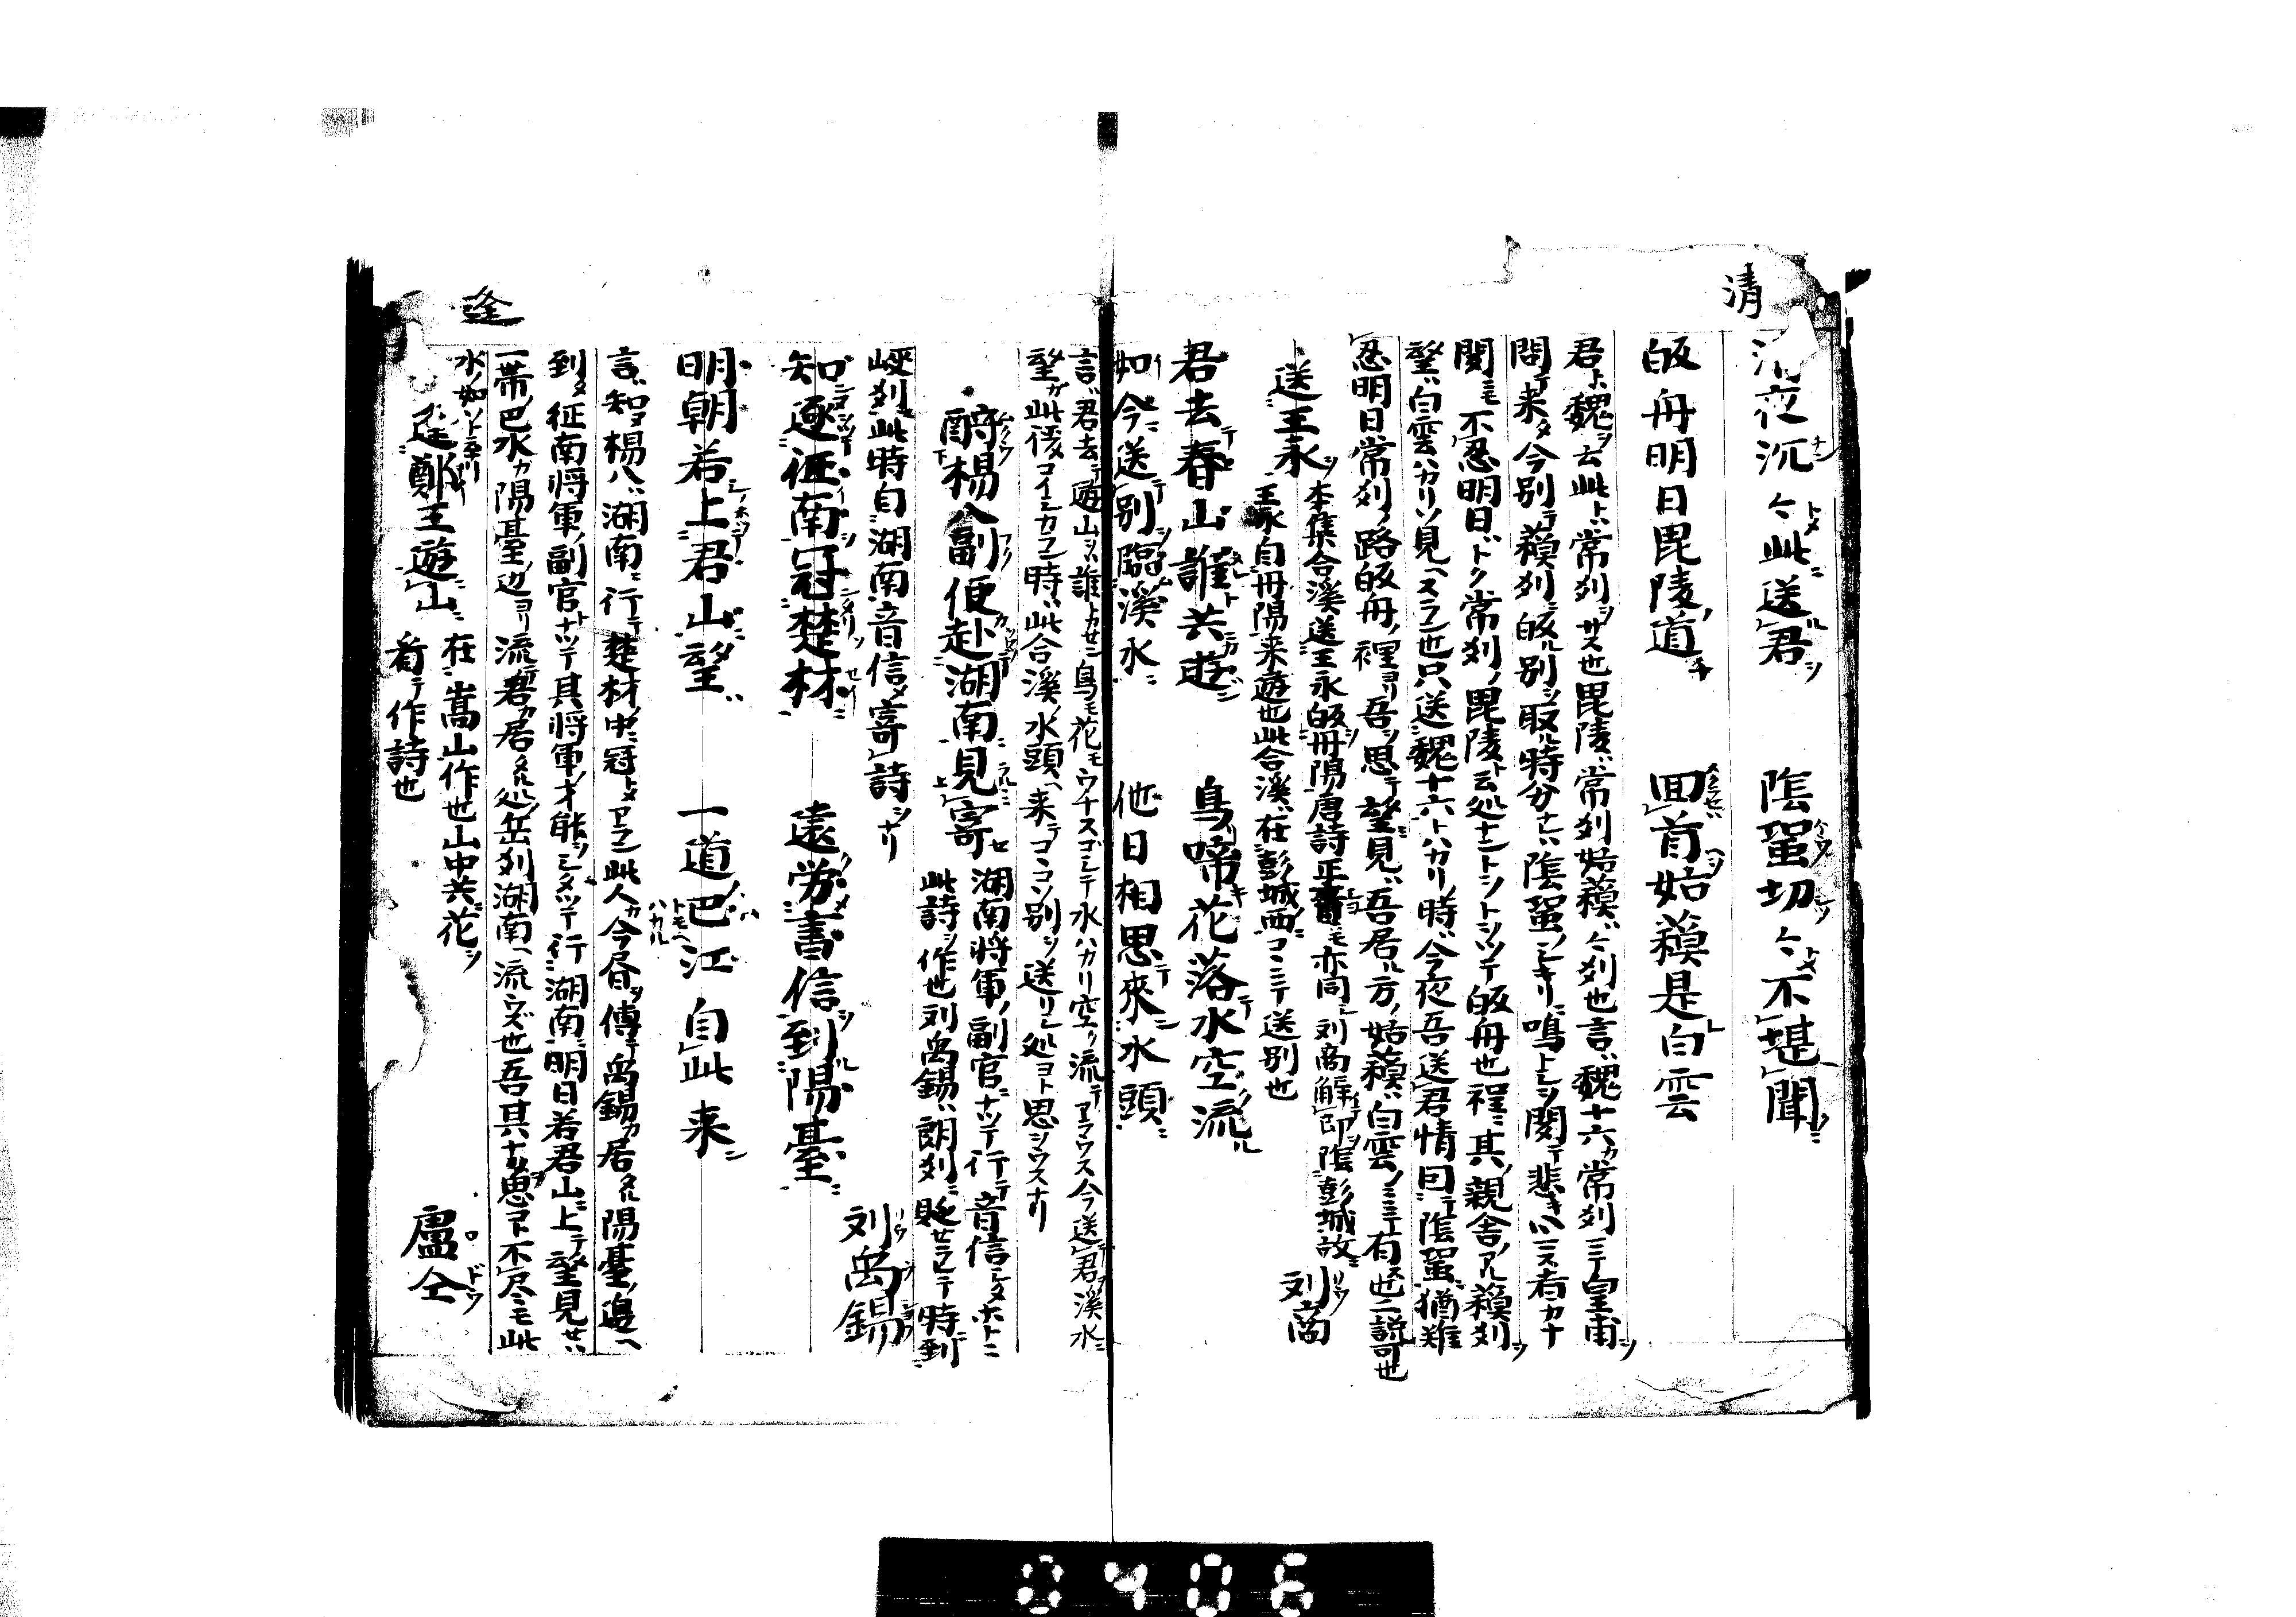 清
清夜沉〻此送君　陰蛩切〻不堪聞
皈舟明日毘陵道　回首姑蘓是白雲
君ト魏ヲ云此トハ常刕ヲサス也毘陵ハ常刕姑蘓ハ〻刕也言ハ魏十六カ常刕ニテ皇甫ヲ
問テ来タ今別テ蘓刕ニ皈ル別ヲ取ル時分ナニ陰蛩ノシキリニ鳴トシヲ聞テ悲キハニス有カナ
聞ニモ不忍明日ハトク常刕ノ毘陵ト云処ナントシトシツテ皈舟也程ニ其親舎ノアル蘓刕ヲ
望ハ白雲ハカリソ見ヘスラン也只送魏十六トハカリ時ハ今夜吾送君情同テ陰蛩猶難
忍明日常刕ノ路皈舟ノ裡ヨリ吾ヲ思テ望見ハ吾居ル方ノ姑蘓ハ白雲ノミニテ有ヘ也二説可也
送王永　本集合溪送王永皈丹陽唐詩正音モ亦同　刘商解印隠彭城故　刘商
王永自丹陽来遊也此合溪ハ在彭城西コヽニテ送別也
君去春山誰共遊　鳥啼花落水空流
如今送別臨溪水　他日相思來水頭
言ハ君去テ遊山ヲハ誰トカせン鳥モ花モウチスゴシテ水ハカリ空ク流テアマウス今送君溪水ニ
望カ此後コイシカラン時ハ此合溪ノ水頭ヘ来テコヽコソ別ヲ送リシ処ヨト思ヲウスナリ
酧楊八副使赴湖南見寄　湖南將軍ノ副官ニナツテ行テ音信シタホトニ
此詩ヲ作也刘禹錫ハ朗刕ニ貶せラレテ時到　刘禹錫
峽刕此時自湖南音信メ寄詩ヲナリ
知逐征南冠楚材　遠労書信到陽臺
明朝若上君山望　一道巴江自此来
言ハ知ヌ楊八ハ湖南ニ行テ楚材中ニ冠トメアラン此人カ今昏ヲ傳テ禹錫カ居タル陽臺ノ邉ヘ
到タ征南將軍ノ副官トナツテ其將軍ノ才能ヲシメツテ行湖南ニ明日若君山ニ上テ望見せハ
一帶ノ巴水カ陽臺ノ辺ヨリ流テ君カ居タル処ノ岳刕湖南ヘ流ウズ也吾其ナ思ヲコト不尽モ此
水ノ如トナリ
逢
逢鄭主遊山　在嵩山作也山中共花ヲ
看テ作詩也　盧仝